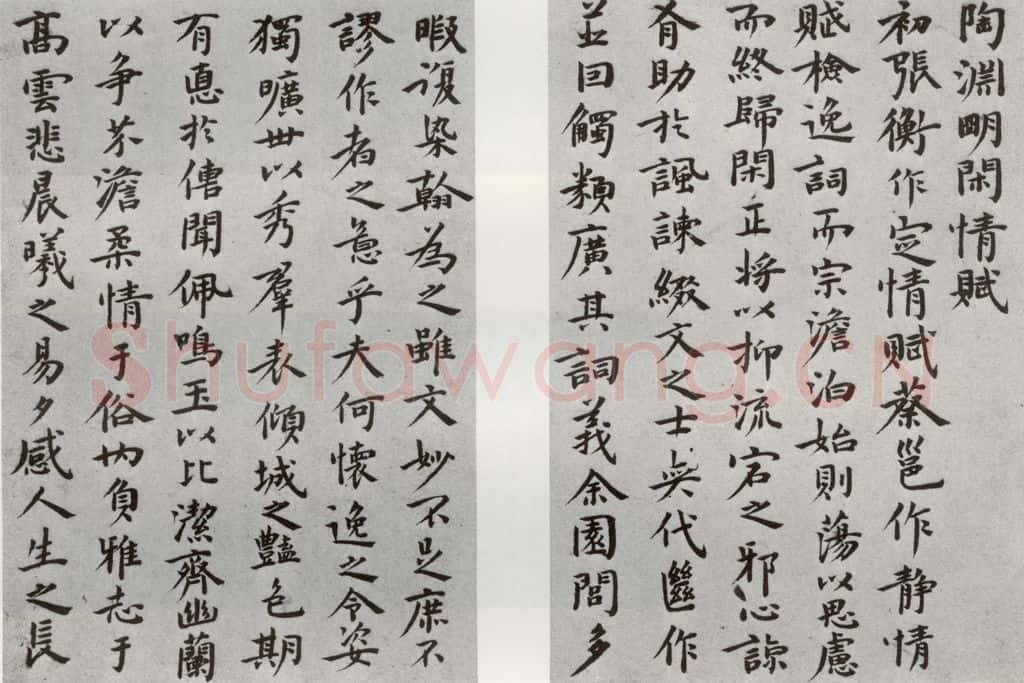 陶淵明閑情賦
初張衡作定情賦蔡邕作静情
賦檢逸詞而宗澹泊始則蕩以思慮
而終歸閑正將以抑流宕之邪心諒
有助於諷諫綴文之士奕代繼作
並囙觸類廣其詞義余園閭多
暇復染翰為之雖文妙不足庶不
謬作者之意乎夫何懷逸之令姿
獨曠世以秀羣表傾城之豔色期
有悳於傳聞佩鳴玉以比潔齊幽蘭
以争芬澹柔情于俗内負雅志于
高雲悲晨曦之易夕感人生之長
Shufawang.CN